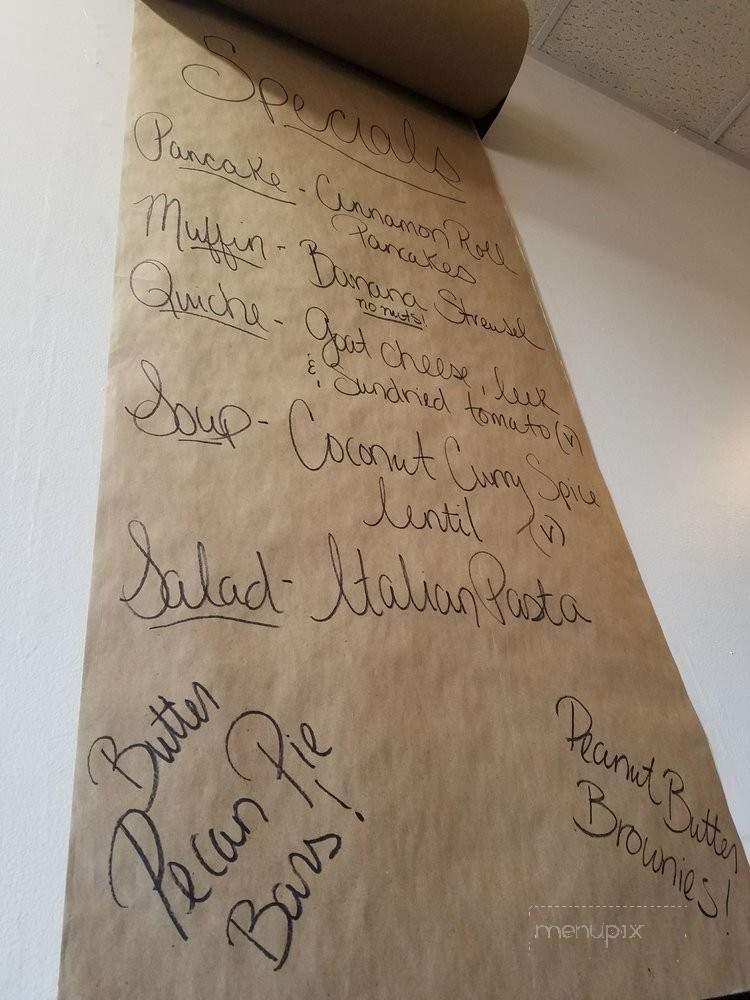 Specials
Pancake - Cinnamon Roll
Pancakes
Muffin - Banana Streusel
no nuts!
Quiche - Goat cheese, leek
& Sundried tomato (v)
Soup - Coconut Curry Spice
lentil (v)
Salad - Italian Pasta
Butter
Pecan Pie
Bars!
Peanut Butter
Brownies!
menupix